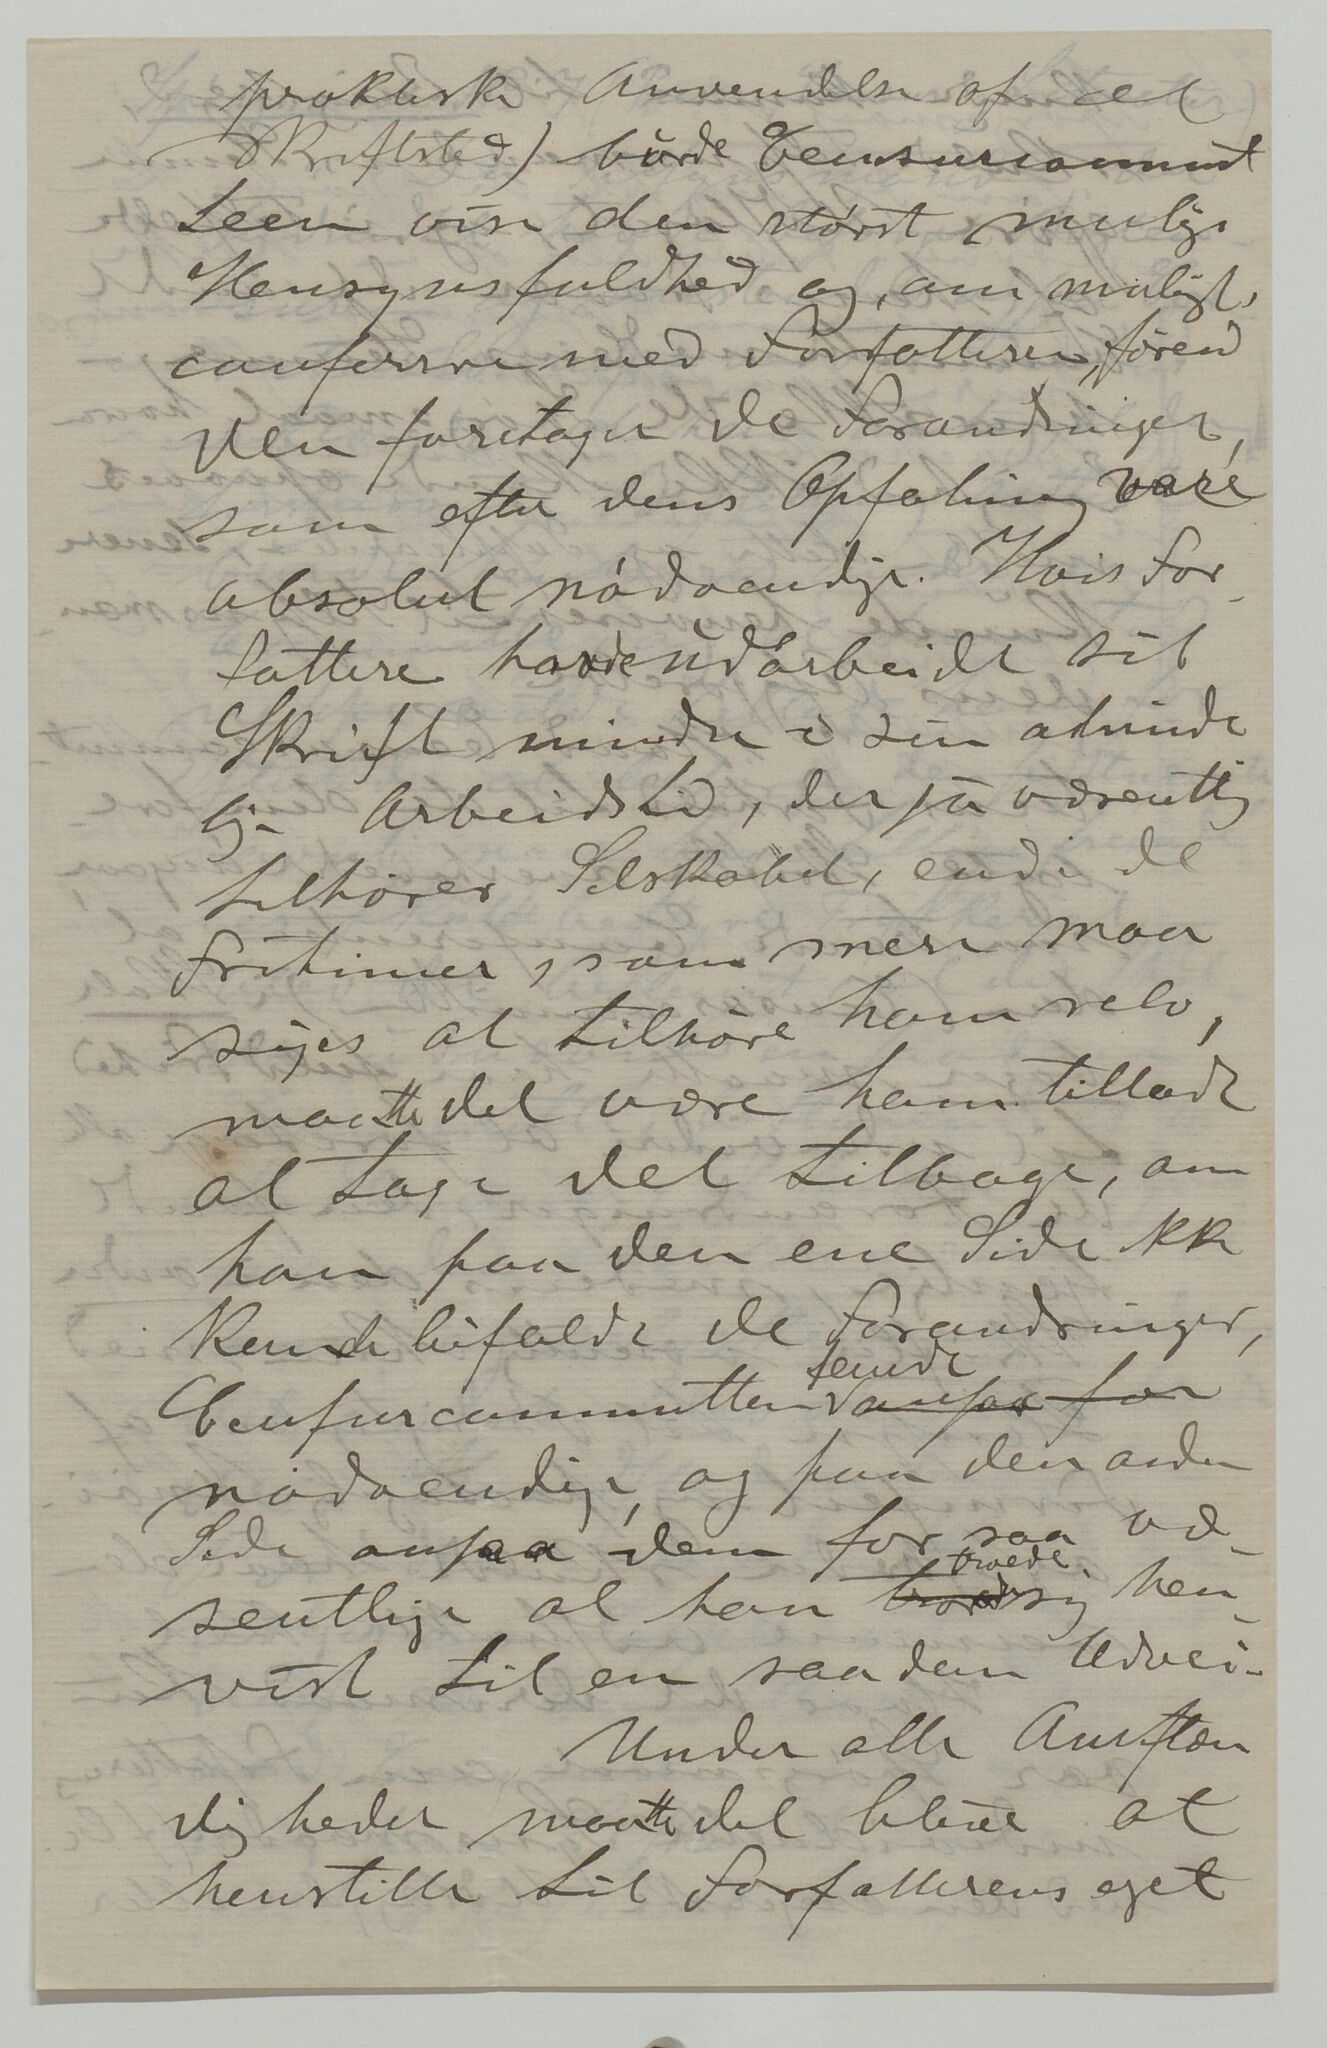 praktiske Anvendelse af et
Skriftsted) burde Censurcommit
teen vise den størst mulige
Hensynsfuldhed og, om muligt,
conferere med Forfatteren, førend
den foretager de Forandringer,
som efter dens Opfatning vare
absolut nødvendige. Hvis For-
fattere havde udarbeidet sit
Skrift mindre i sin alminde
lige Arbeidstid, der jo væsentlig
tilhører Selskabet, end i de
Fritimer, som mere maa
siges at tilhøre ham selv,
maatte det være ham tilladt
at tage det tilbage, om
han paa den ene Side ikke
kunde bifalde de Forandringer,
fandt
Censurcommitteen ansaa for
nødvendige, og paa den anden
Side ansaa dem for saa væ-
troede
sentlige at han sig hen-
vist til en saadan Udvei.
Under alle Omstæn
digheder maatte det blive at
henstille til Forfatterens eget